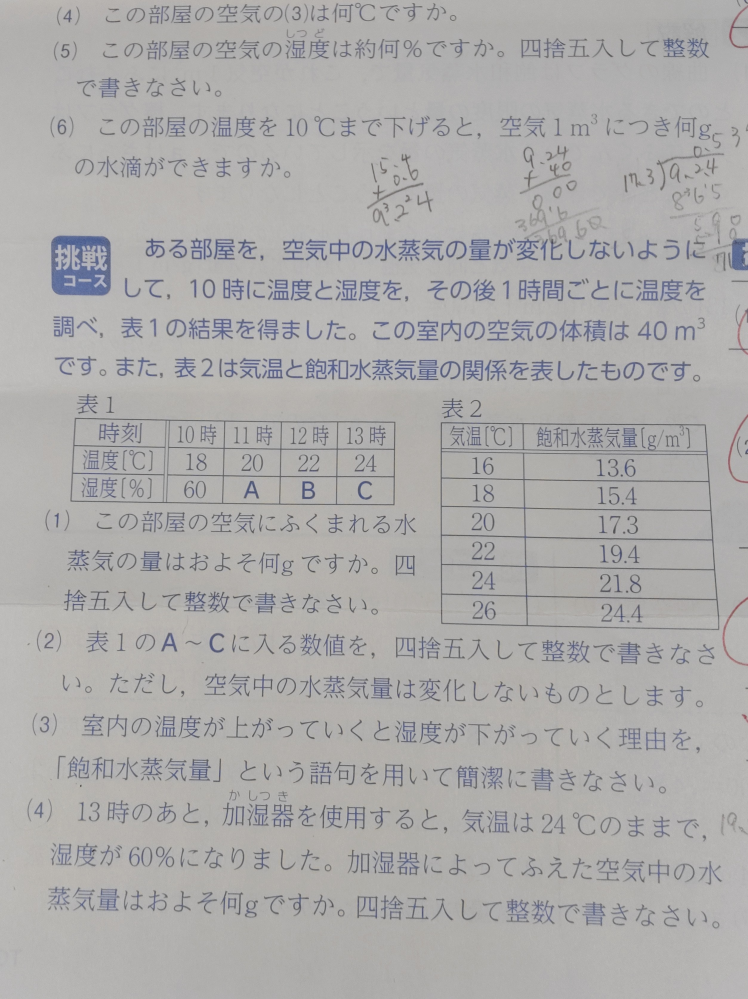 (4) この部屋の空気の(3)は何℃ですか。
(5) この部屋の空気の湿度は約何%ですか。四捨五入して整数
しつ ど
で書きなさい。
(6) この部屋の温度を10℃まで下げると，空気1m³につき何g
の水滴ができますか。
15.4
+ 0.6
9.24
9.24
+ 40
000
369.6
17.3)9.2.4
0.53
865
590
挑戦
コース
ある部屋を，空気中の水蒸気の量が変化しないように
して，10時に温度と湿度を，その後1時間ごとに温度を
調べ，表1の結果を得ました。この室内の空気の体積は40m³
です。また，表2は気温と飽和水蒸気量の関係を表したものです。
表1
時刻 10時 11時 12時 13時
温度〔℃〕 18 20 22 24
湿度〔%〕 60 A B C
表2
気温〔℃〕 飽和水蒸気量〔g/m³〕
16 13.6
18 15.4
20 17.3
22 19.4
24 21.8
26 24.4
(1) この部屋の空気にふくまれる水
蒸気の量はおよそ何gですか。四
捨五入して整数で書きなさい。
(2) 表1のA～Cに入る数値を，四捨五入して整数で書きなさ
い。ただし，空気中の水蒸気量は変化しないものとします。
(3) 室内の温度が上がっていくと湿度が下がっていく理由を，
「飽和水蒸気量」という語句を用いて簡潔に書きなさい。
(4) 13時のあと，加湿器を使用すると，気温は24℃のままで，
か しつ き
湿度が60%になりました。加湿器によってふえた空気中の水
蒸気量はおよそ何gですか。四捨五入して整数で書きなさい。